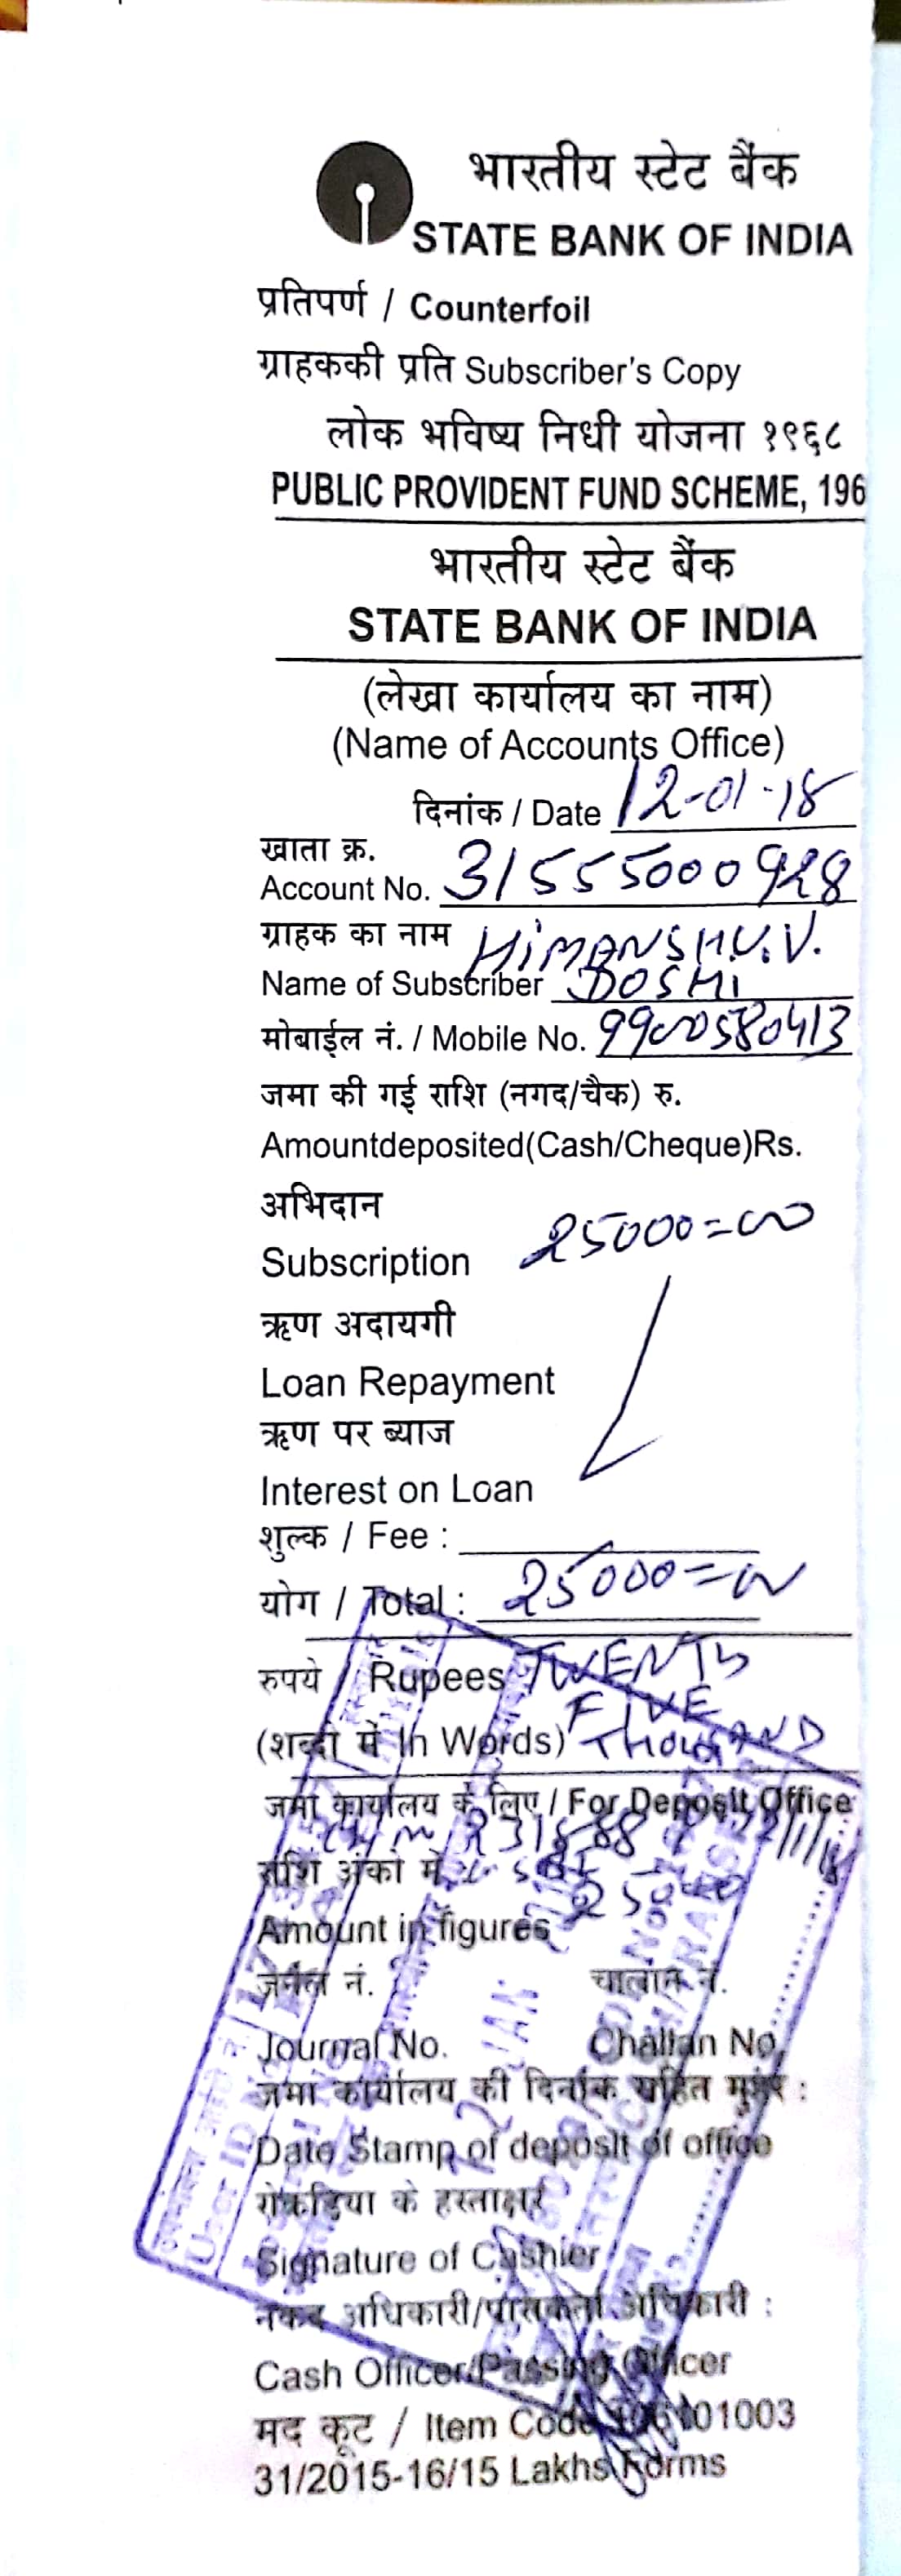 भारतीय स्टेट बैंक
STATE BANK OF INDIA
प्रतिपर्ण / Counterfoil
ग्राहककी प्रति Subscriber's Copy
लोक भविष्य निधी योजना १९६८
PUBLIC PROVIDENT FUND SCHEME, 196
भारतीय स्टेट बैंक
STATE BANK OF INDIA
(लेखा कार्यालय का नाम)
(Name of Accounts Office)
दिनांक / Date 12-01-18
खाता क्र.
Account No. 31555000928
ग्राहक का नाम HIMANSHU.V.
Name of Subscriber DOSHI
मोबाईल नं. / Mobile No. 9900580413
जमा की गई राशि (नगद/चैक) रु.
Amountdeposited(Cash/Cheque)Rs.
अभिदान
Subscription 25000=00
ऋण अदायगी
Loan Repayment
ऋण पर ब्याज
Interest on Loan
शुल्क / Fee :
योग / Total : 25000=00
रुपये / Rupees TWENTY
FIVE
(शब्दो में In Words) THOUSAND
जमा कार्यालय के लिए / For Deposit Office
231888
राशि अंको में
Amount in figures
जर्नल नं. चालान नं.
Journal No. Challan No.
जमा कार्यालय की दिनांक सहित मुहर :
Date Stamp of deposit of office
रोकडिया के हस्ताक्षर
Signature of Cashier
नकद अधिकारी/पासकर्ता अधिकारी :
Cash Officer/Passing Officer
मद कूट / Item Code 101003
31/2015-16/15 Lakhs Forms
User ID
JAN